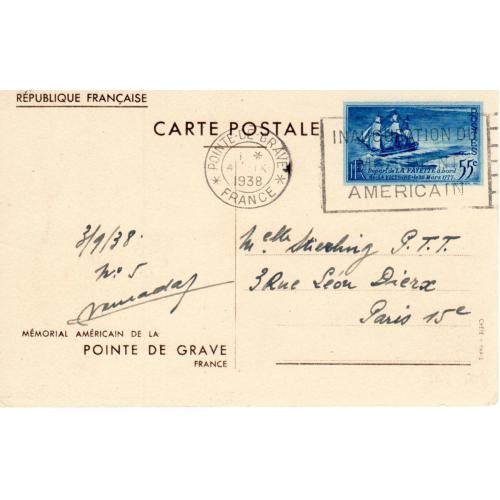 RÉPUBLIQUE FRANÇAISE
CARTE POSTALE
POINTE-DE-GRAVE
1938
FRANCE
INAUGURATION DU
AMERICAIN
POSTES
55c
Départ de LA FAYETTE à bord
de LA VICTOIRE le 26 Mars 1777
3/9/38.
N° 5
Melle Stierling P.T.T.
3 Rue Léon Dierx
Paris 15e
MÉMORIAL AMÉRICAIN DE LA
POINTE DE GRAVE
FRANCE